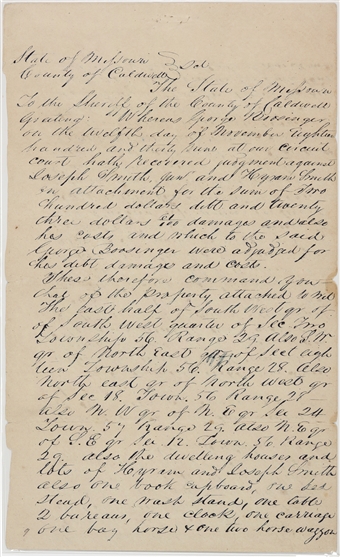 State of Missouri } Sct
County of Caldwell
The State of Missouri
To the Sheriff of the County of Caldwell
Greeting: Whereas George Boosinger
on the twelfth day of November eighteen
hundred and thirty nine at our circuit
court hath recovered judgment against
Joseph Smith, Jun and Hyram Smith
in attachment for the sum of Two
hundred dollars debt and twenty
three dollars damages and also
his costs, and which to the said
George Boosinger were adjudged for
his debt damage and costs.
These therefore command you
that of the Property attached to wit
The East half of South West qr
of South West quarter of Sec Two
Township 56. Range 29. Also S.W
qr. of North East qr. of Sect eigh
teen Township 56. Range 28. Also
North east qr of North West qr
of Sec 18. Town. 56 Range 28—
also N. W qr. of N. E qr Sec 24
Town. 57 Range 29. also N. E qr
of S. E qr Sec 12. Town. 56 Range
29. also the dwelling houses and
lots of Hyrum and Joseph Smith
also one book cupboard, one
stand, one wash stand, one table
2 bureaus, one clock, one carriage
one bay horse & one two horse waggon